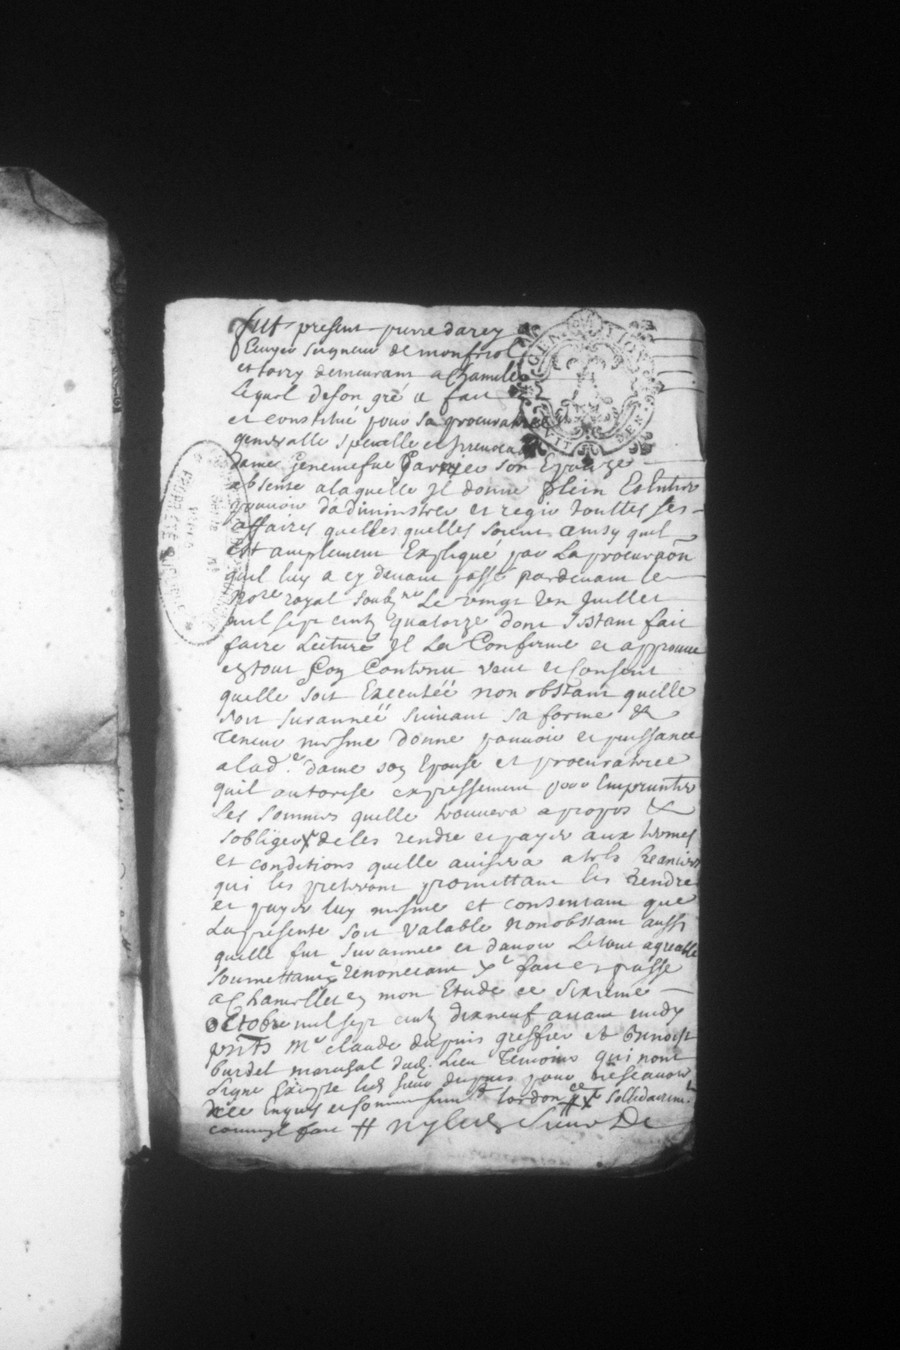 fut present pierre darcy
Ecuyer seigneur de monfriol
et torzy demeurant a Chamelet
Lequel de son gré a fait
et constitué pour sa procuratrice
generalle specialle et
dame geneviefve son Epouze
absente alaquelle Il donne plein Et Entier
pouvoir dadministrer et regir touttes ses
affaires quelles quelles soient ainsy quil
Est amplement Expliqué par La procura͠on
quil luy a cy devant passé pardevant le
no.re royal soub.né Le vingt un Juillet
mil sept cent quatorze dont sestant fait
faire Lecture Il La Confirme et appreuve
en tout son Contenu veut et Consent
quelle soit Executéé nonobstant quelle
soit surannéé suivant sa forme &
Teneur mesme donne pouvoir et puissance
a lad.e dame son Epouse et procuratrice
quil autorise expressement pour Emprunter
Les sommes quelle trouvera apropos &
sobliger X de les rendre et payer aux termes
et conditions quelle avisera a tels Creanciers
qui les preteront promettant les rendre
et payer luy mesme et consentant que
La presente soit valable nonobstant aussy
quelle fut surannee et davoir Le tout agreable
soumettant renonciant fait et passé
a Chamellet en mon Etude ce sixieme
octobre mil sept cent dixneuf avant midy
pnts M.e claude dupuis greffier et benoist
burdel marechal dud. Lieu Temoins qui nont
signé Excepté led. sieur dupuis pour ne scavoir
de ce Enquis et sommes # X sollidairem.t
comme # ny led. sieur De
GEN